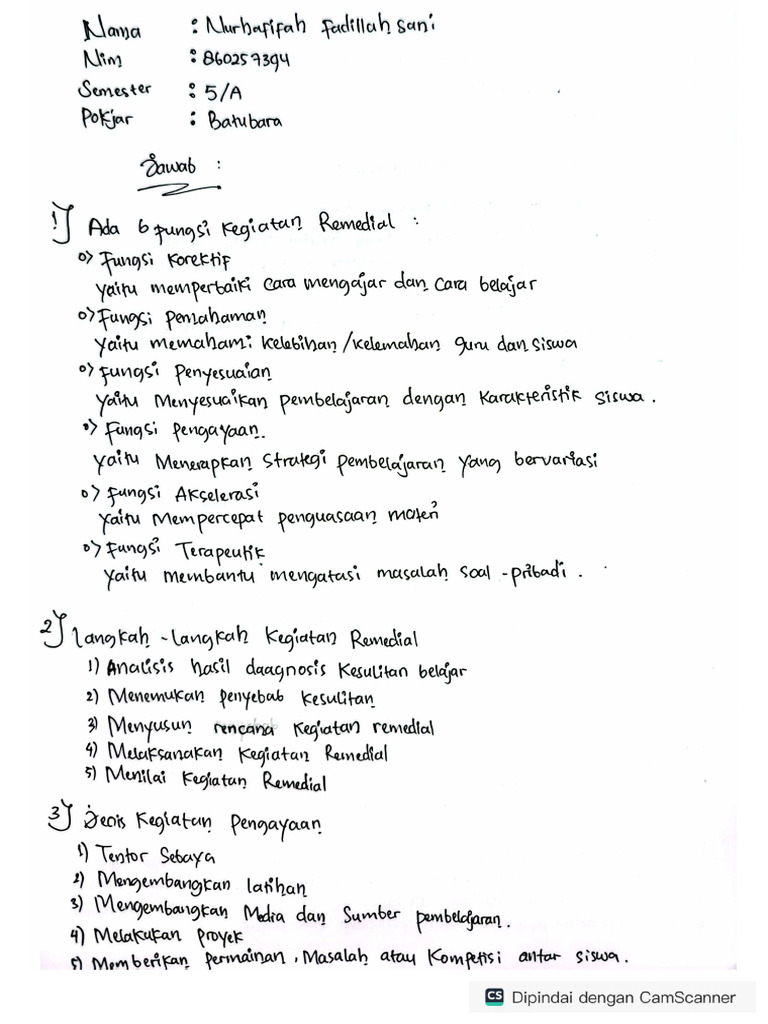 Nama : Nurhafifah Fadillah Sani
Nim : 860257394
Semester : 5/A
Pokjar : Batubara
Jawab :
1) Ada 6 fungsi Kegiatan Remedial :
o> Fungsi Korektif
yaitu memperbaiki cara mengajar dan cara belajar
o> Fungsi Pemahaman
yaitu memahami kelebihan/kelemahan guru dan siswa
o> Fungsi Penyesuaian
yaitu Menyesuaikan pembelajaran dengan Karakteristik siswa.
o> Fungsi Pengayaan.
yaitu Menerapkan strategi pembelajaran yang bervariasi
o> Fungsi Akselerasi
yaitu Mempercepat penguasaan materi
o> Fungsi Terapeutik
yaitu membantu mengatasi masalah soal-pribadi.
2) Langkah-langkah Kegiatan Remedial
1) Analisis hasil daagnosis Kesulitan belajar
2) Menemukan penyebab kesulitan
3) Menyusun rencana kegiatan remedial
4) Melaksanakan Kegiatan Remedial
5) Menilai Kegiatan Remedial
3) Jenis Kegiatan Pengayaan
1) Tentor Sebaya
2) Mengembangkan latihan
3) Mengembangkan Media dan Sumber pembelajaran.
4) Melakukan Proyek
5) Memberikan permainan, Masalah atau Kompetisi antar siswa.
CS Dipindai dengan CamScanner